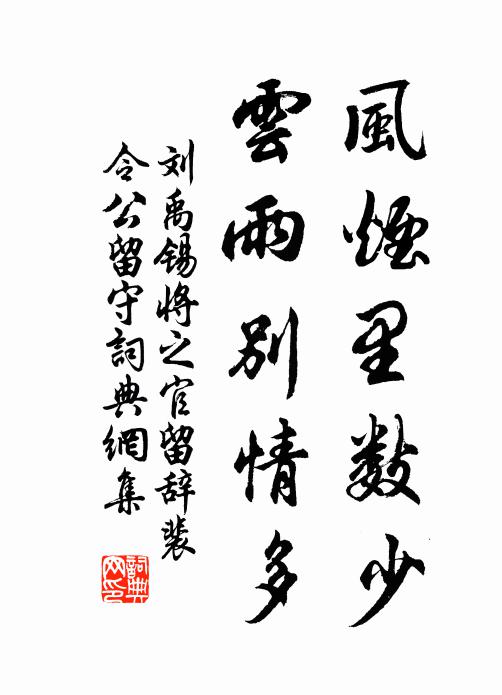 風煙里数少
雲雨別情多
刘禹锡將之官留辞裴
令公留守詞典網集
詞典网印